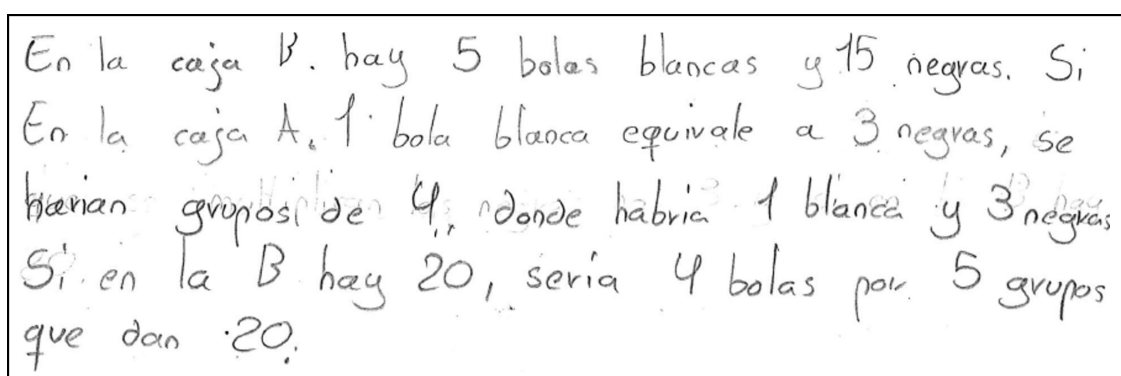 En la caja B. hay 5 bolas blancas y 15 negras. Si
En la caja A, 1 bola blanca equivale a 3 negras, se
harian grupos de 4, donde habria 1 blanca y 3 negras
Si en la B hay 20, seria 4 bolas por 5 grupos
que dan 20.